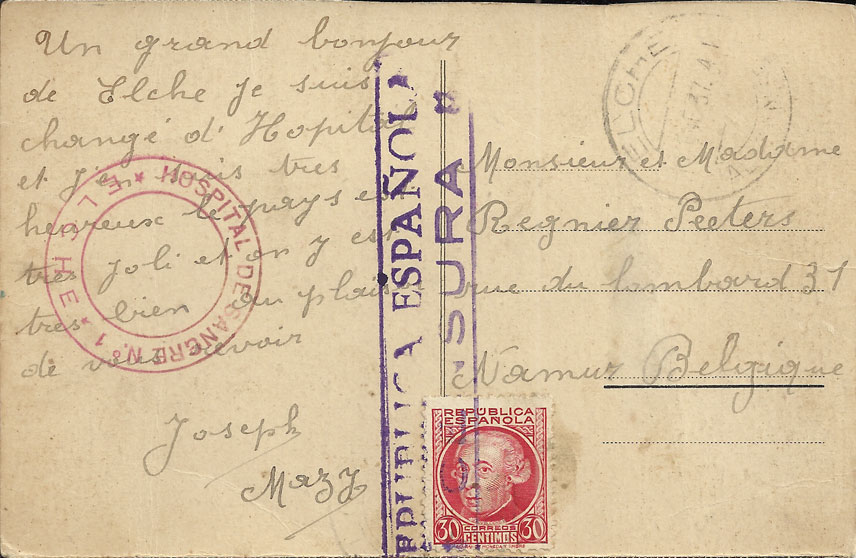 Un grand bonjour
de Elche je suis
changé d'Hopital
et j'en suis tres
heureux le pays est
tres joli et on y est
tres bien au plaisir
de vous revoir
Joseph
Mazy
HOSPITAL DE SANGRE N.º 1
ELCHE
REPUBLICA ESPAÑOLA
CENSURA
ELCHE
Monsieur et Madame
Regnier Peeters
rue du lombard 31
Namur Belgique
REPUBLICA
ESPAÑOLA
30 CORREOS 30
CENTIMOS